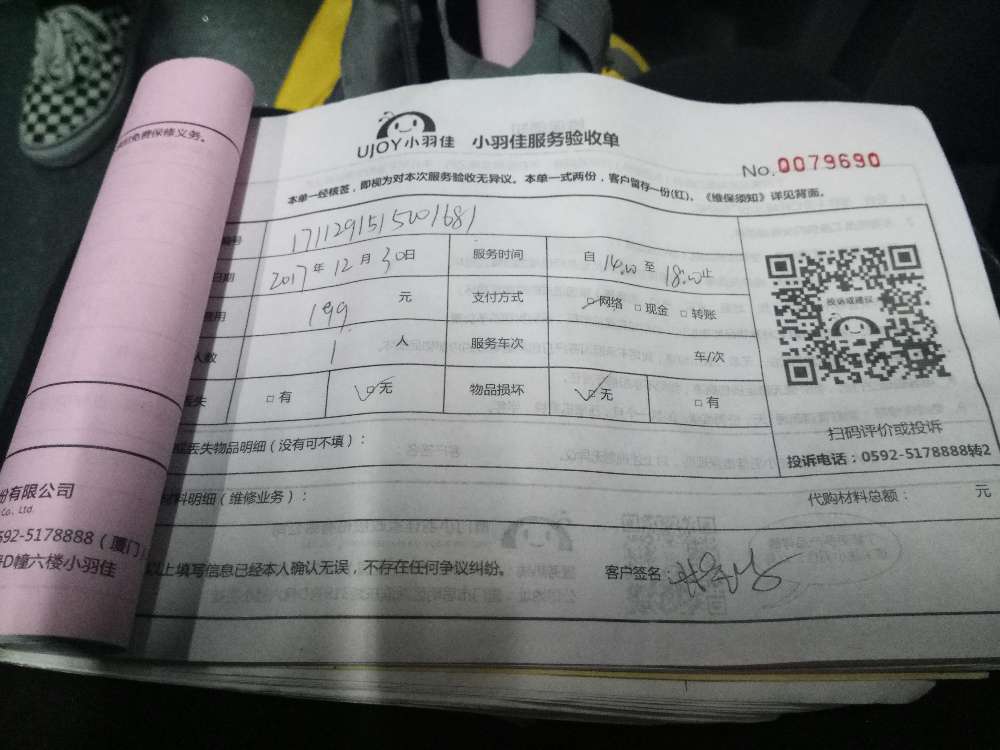 免费保修义务。
UJOY小羽佳 小羽佳服务验收单
No.0079690
本单一经核签，即视为对本次服务验收无异议。本单一式两份，客户留存一份(红)，《维保须知》详见背面。
编号 1711291515001681
日期 2017年12月30日 服务时间 自14:00至18:00止
费用 199 元 支付方式 ☑网络 □现金 □转账
人数 1 人 服务车次 车/次
丢失 □有 ☑无 物品损坏 ☑无 □有
投诉或建议
扫码评价或投诉
投诉电话：0592-5178888转2
或丢失物品明细（没有可不填）：
材料明细（维修业务）： 代购材料总额： 元
以上填写信息已经本人确认无误，不存在任何争议纠纷。 客户签名：
份有限公司
Co., Ltd.
592-5178888（厦门）
D幢六楼小羽佳